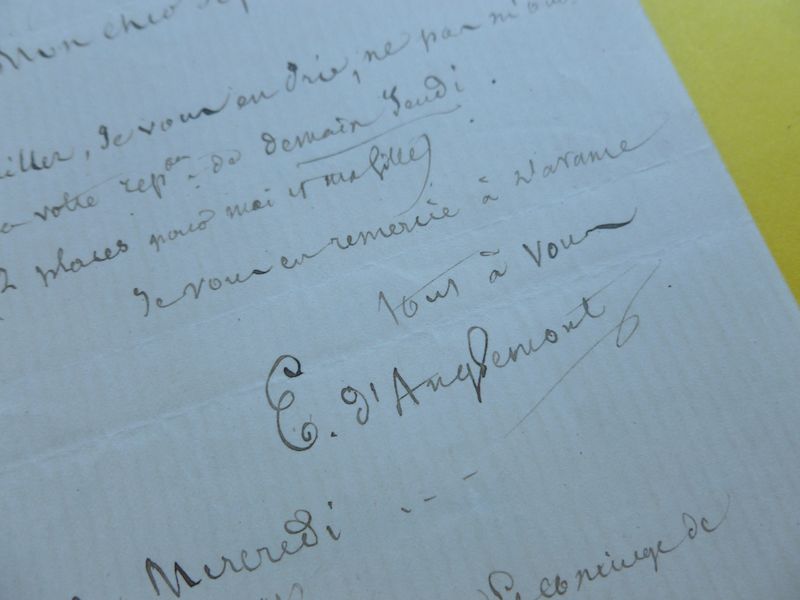 Mon cher
Je vous en prie, ne pas m'ou
votre repon de demain Jeudi .
2 places pour moi et ma fille)
Je vous en remercie à l'avance
tout à vous
E. d'Anglemont
Mercredi ---
de